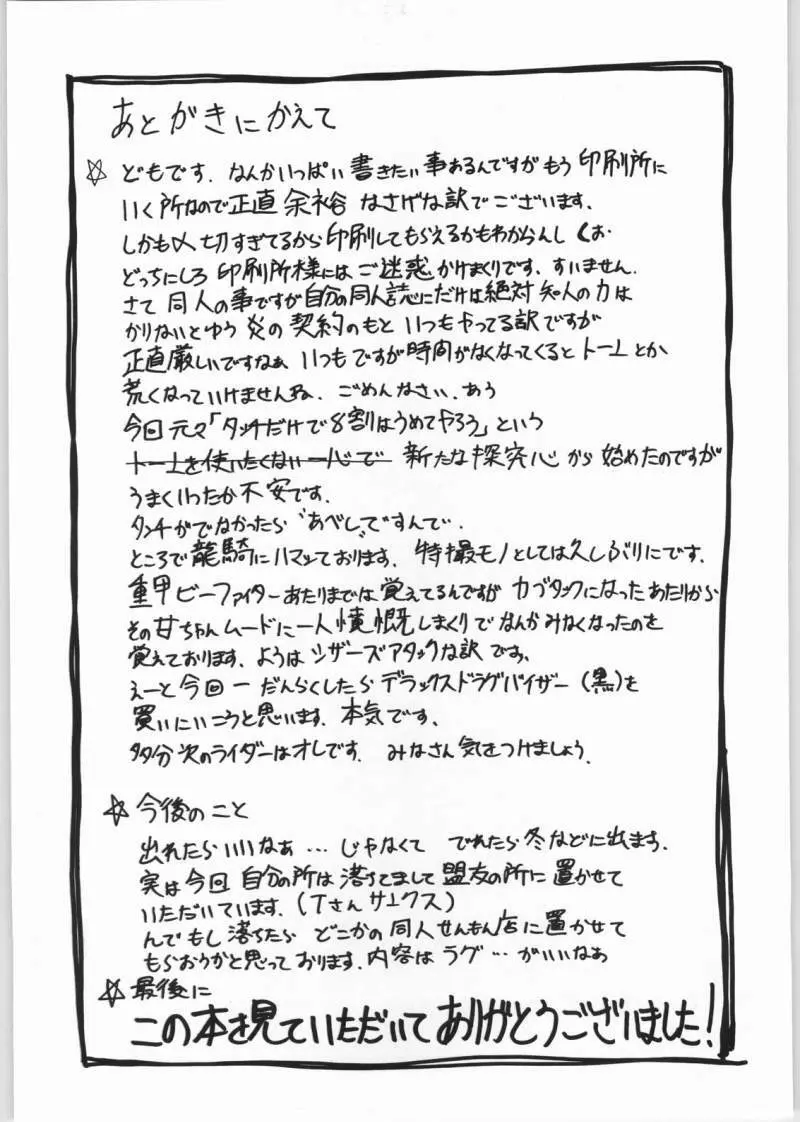 あとがきにかえて
☆ どもです. なんかいっぱい書きたい事あるんですがもう印刷所に
いく所なので正直余裕なさげな訳でございます.
しかも〆切すぎてるから印刷してもらえるかもわからんし くぉ.
どっちにしろ印刷所様にはご迷惑かけまくりです. すいません.
さて同人の事ですが自分の同人誌にだけは絶対知人の力は
かりないとゆう炎の契約のもといつもやってる訳ですが
正直厳しいですなぁ いつもですが時間がなくなってくるとトーンとか
荒くなっていけませんね. ごめんなさい. あう
今回元々「タッチだけで8割はうめてやろう」という
トーンを使いたくない一心で 新たな探究心から始めたのですが
うまくいったか不安です.
タッチがでなかったら“あべし”ですんで.
ところで龍騎にハマッております. 特撮モノとしては久しぶりにです.
重甲ビーファイターあたりまでは覚えてるんですがカブタックになったあたりから
その甘ちゃんムードに一人憤慨しまくりでなんかみなくなったのを
覚えております. ようはシザーズアタックな訳です.
えーと今回一だんらくしたらデラックスドラグバイザー(黒)を
買いにいこうと思います. 本気です.
多分次のライダーはオレです. みなさん気をつけましょう.
☆ 今後のこと
出れたらいいなぁ…じゃなくて でれたら冬などに出ます.
実は今回自分の所は落ちてまして盟友の所に置かせて
いただいています. (Tさんサンクス)
んでもし落ちたらどこかの同人せんもん店に置かせて
もらおうかと思っております. 内容はラグ…がいいなぁ
☆ 最後に
この本を見ていただいてありがとうございました!